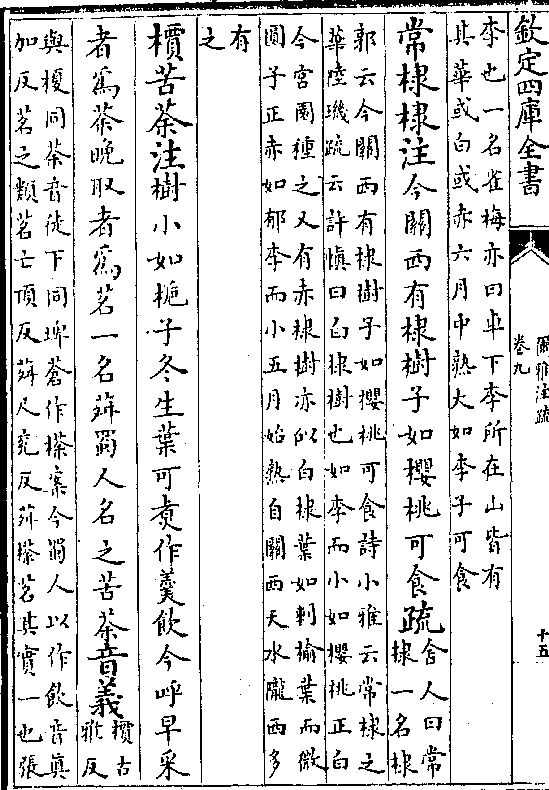 欽定四庫全書
爾雅注疏
卷九
十五
李也一名雀梅亦曰車下李所在山皆有
其華或白或赤六月中熟大如李子可食
常棣棣注今關西有棣樹子如櫻桃可食疏舍人曰常
棣一名棣
郭云今關西有棣樹子如櫻桃可食詩小雅云常棣之
華陸璣疏云許愼曰白棣樹也如李而小如櫻桃正白
今宮園種之又有赤棣樹亦似白棣葉如刺榆葉而微
圓子正赤如郁李而小五月始熟自關西天水隴西多
有
之
檟苦荼注樹小如梔子冬生葉可煮作羹飲今呼早采
者爲荼晩取者爲茗一名荈蜀人名之苦荼音義檟古
雅反
與榎同荼音徒下同埤蒼作㯂案今蜀人以作飲音眞
加反茗之類茗亡頂反荈尺兖反荈㯂茗其實一也張